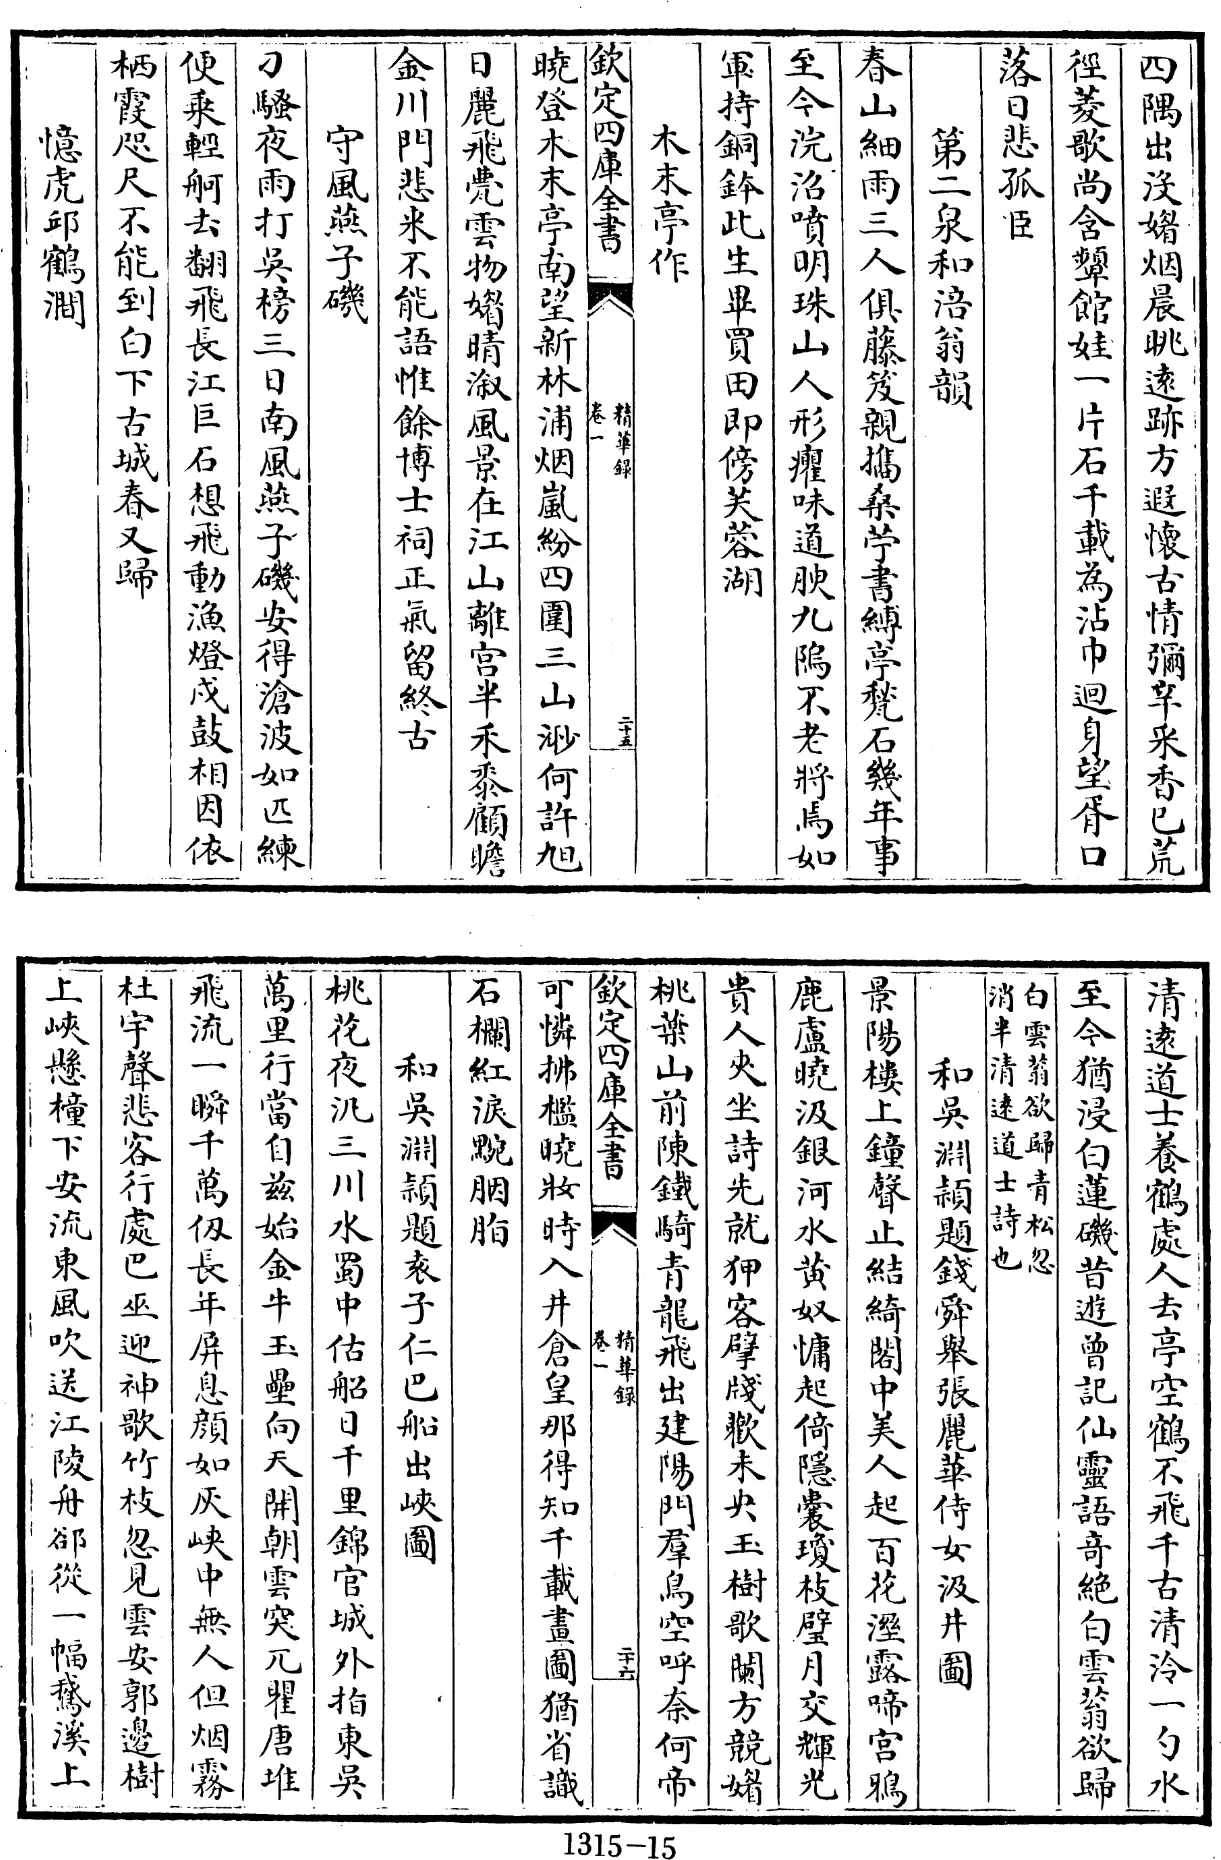 四隅出没媚烟晨眺遠跡方遐懷古情彌卒采香已荒
徑菱歌尚含顰館娃一片石千載為沾巾迴身望胥口
落日悲孤臣
第二泉和涪翁韻
春山細雨三人俱藤笈親攜桑苧書縛亭甃石幾年事
至今浣沼噴明珠山人形癯味道腴九隖不老將焉如
軍持銅鉢此生畢買田即傍芙蓉湖
木末亭作
欽定四庫全書
精華録
卷一
二十五
曉登木末亭南望新林浦烟嵐紛四圍三山渺何許旭
日麗飛甍雲物媚晴溆風景在江山離宫半禾黍顧瞻
金川門悲来不能語惟餘博士祠正氣留終古
守風燕子磯
刁騷夜雨打吳榜三日南風燕子磯安得滄波如匹練
便乘輕舸去翻飛長江巨石想飛動漁燈戍鼓相因依
栖霞咫尺不能到白下古城春又歸
憶虎邱鶴澗
清遠道士養鶴處人去亭空鶴不飛千古清泠一勺水
至今猶浸白蓮磯昔遊曾記仙靈語奇絶白雲翁欲歸
白雲翁欲歸青松忽
消半清遠道士詩也
和吳淵頴題錢舜舉張麗華侍女汲井圖
景陽樓上鐘聲止結綺閣中美人起百花溼露啼宮鴉
鹿盧曉汲銀河水黄奴慵起倚隱囊瓊枝璧月交輝光
貴人夾坐詩先就狎客擘牋歡未央玉樹歌闌方競媚
桃葉山前陳鐵騎青龍飛出建陽門羣鳥空呼奈何帝
欽定四庫全書
精華録
卷一
二十六
可憐拂檻曉妝時入井倉皇那得知千載畫圖猶省識
石欄紅淚黦胭脂
和吳淵頴題袁子仁巴船出峽圖
桃花夜汎三川水蜀中估船日千里錦官城外指東吳
萬里行當自兹始金牛玉壘向天開朝雲突兀瞿唐堆
飛流一瞬千萬仭長年屏息顔如灰峽中無人但烟霧
杜宇聲悲客行處巴巫迎神歌竹枝忽見雲安郭邊樹
上峽懸橦下安流東風吹送江陵舟郤從一幅鵞溪上
1315-15